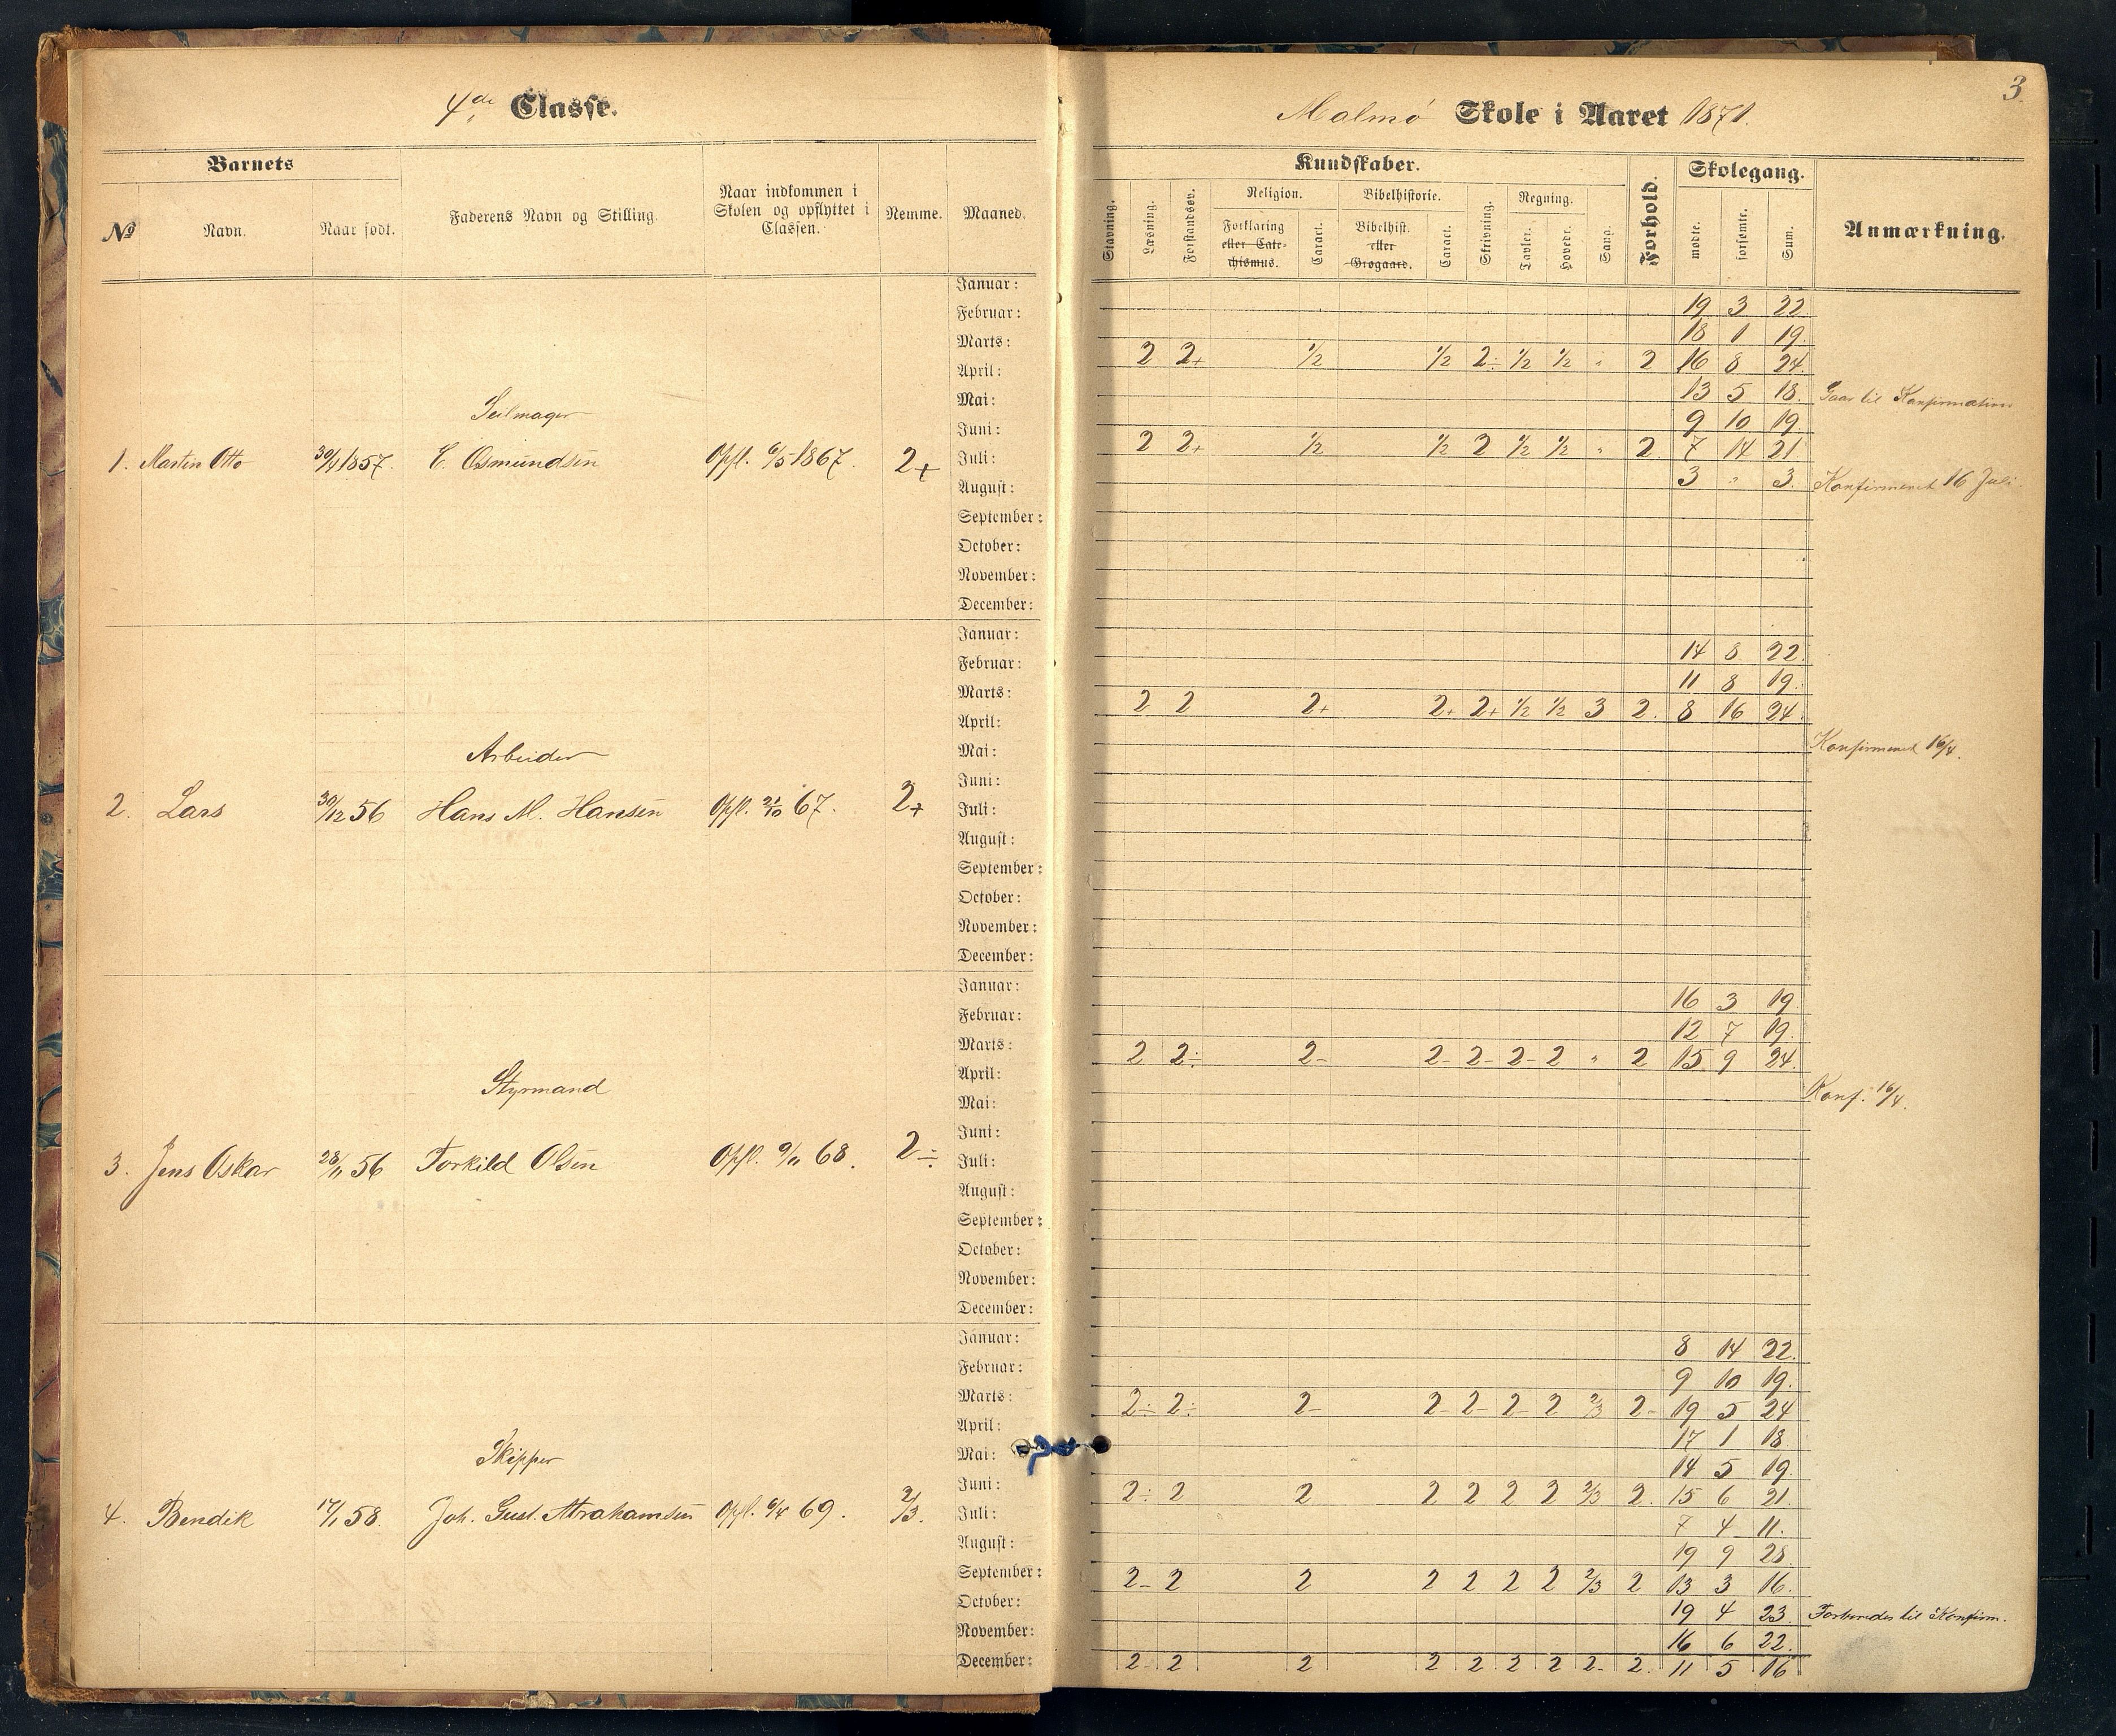 4de Classe.
Malmö Skole i Aaret 1871.
3.
Barnets
Kundskaber.
Skolegang.
№
Navn.
Naar født.
Faderens Navn og Stilling.
Naar indkommen i
Skolen og opflyttet i
Classen.
Nemme.
Maaned.
Stavning.
Læsning.
Forstandsøv.
Religion.
Forklaring
eller Cate-
chismus.
Caract.
Bibelhistorie.
Bibelhist.
eller
Grogaard.
Caract.
Skrivning.
Regning.
Tavler.
Hovedr.
Sang.
Forhold.
mødte.
forsømte.
Sum.
Anmærkning.
Januar: 19 3 22
Februar: 18 1 19.
Marts: 2 2+ 1/2 1/2 2÷ 1/2 1/2 " 2 16 8 24
April: 13 5 18. Gaar til Konfirmation
Mai: 9 10 19.
Juni: 2 2+ 1/2 1/2 2 1/2 1/2 " 2 7 14 21
Seilmager
1. Martin Otto 30/4 1857. E. Osmundsen Opfl. 6/5 1867. 2+
Juli: 3 " 3. Konfirmeret 16 Juli
August:
September:
October:
November:
December:
Januar: 14 8 22.
Februar: 11 8 19.
Marts: 2 2 2+ 2+ 2+ 1/2 1/2 3 2. 8 16 24.
April: Konfirmeret 16/4.
Mai:
Juni:
Arbeider
2. Lars 30/12 56 Hans M. Hansen Opfl. 21/10 67. 2+
Juli:
August:
September:
October:
November:
December:
Januar: 16 3 19.
Februar: 12 7 19.
Marts: 2 2÷ 2- 2- 2- 2- 2 " 2 15 9 24.
April: Konf. 16/4.
Mai:
Juni:
Styrmand
3. Jens Oskar 28/11 56 Torkild Olsen Opfl. 9/11 68. 2÷
Juli:
August:
September:
October:
November:
December:
Januar: 8 14 22.
Februar: 9 10 19.
Marts: 2÷ 2÷ 2- 2- 2- 2- 2 2/3 2- 19 5 24
April: 17 1 18
Mai: 14 5 19.
Juni: 2÷ 2 2 2 2 2 2 2/3 2. 15 6 21.
Skipper
4. Bendik 17/1 58. Joh. Gust. Abrahamsen Opfl. 6/4 69. 2/3.
Juli: 7 4 11.
August: 19 9 28.
September: 2- 2 2 2 2 2 2 2/3 2 13 3 16.
October: 19 4 23. Forberedes til Konfirm.
November: 16 6 22.
December: 2- 2 2 2 2 2 2 2- 2. 11 5 16